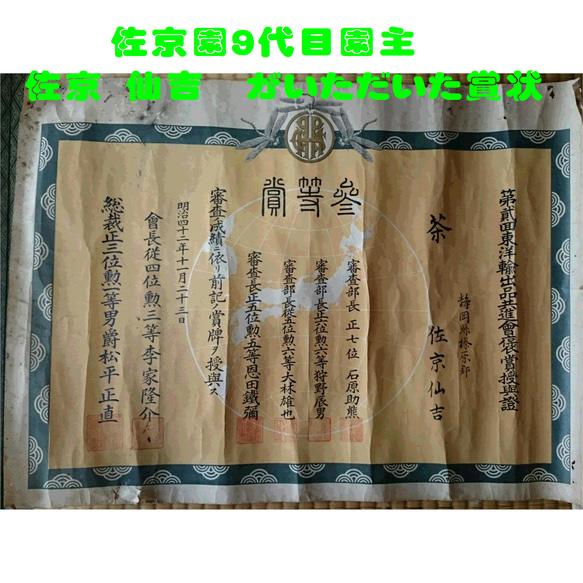 佐京園9代目園主
佐京 仙吉 がいただいた賞状
參等賞
第貳回東洋輸出品共進會褒賞授與證
茶
佐京仙吉
審査部長 正七位 石原助熊
審査部長正六位勲六等狩野辰男
審査部長從五位勲六等大林雄也
審査長正五位勲五等恩田鐵彌
審査成績ニ依リ前記ノ賞牌ヲ授與ス
明治四十二年十一月二十三日
會長從四位勲三等李家隆介
総裁正三位勲一等男爵松平正直